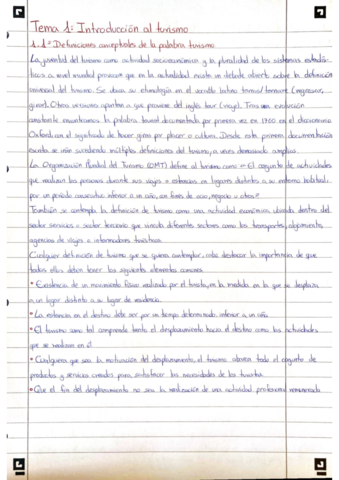 Tema 1: Introducción al turismo
1.1º Definiciones conceptuales de la palabra turismo
La juventud del turismo como actividad socioeconómica y la pluralidad de los sistemas estadís-
ticos a nivel mundial provocan que en la actualidad exista un debate abierto sobre la definición
universal del turismo. Se duda su etimología en el vocablo latino tornus/tornare (regresar,
girar). Otras versiones apuntan a que proviene del inglés tour (viaje). Tras una evolución
constante encontramos la palabra tourist documentada por primera vez en 1800 en el diccionario
Oxford con el significado de hacer giras por placer o cultura. Desde esta primera documentación
escrita se irán sucediendo múltiples definiciones del turismo, a veces demasiado amplias.
La Organización Mundial del Turismo (OMT) define al turismo como "El conjunto de actividades
que realizan las personas durante sus viajes o estancias en lugares distintos a su entorno habitual,
por un período consecutivo inferior a un año, con fines de ocio, negocio u otros"
También se contempla la definición de turismo como una actividad económica ubicada dentro del
sector servicios o sector terciario que vincula diferentes sectores como los transportes, alojamiento,
agencias de viajes o informadores turísticos.
Cualquier definición de turismo que se quiera contemplar, cabe destacar la importancia de que
todas ellas deben tener los siguientes elementos comunes:
• Existencia de un movimiento físico realizado por el turista, en la medida en la que se desplaza
a un lugar distinto a su lugar de residencia.
• La estancia en el destino debe ser por un tiempo determinado, inferior a un año
• El turismo como tal comprende tanto el desplazamiento hacia el destino como las actividades
que se realizan en él
• Cualquiera que sea la motivación del desplazamiento, el turismo abarca todo el conjunto de
productos y servicios creados para satisfacer las necesidades de los turistas.
• Que el fin del desplazamiento no sea la realización de una actividad profesional remunerada